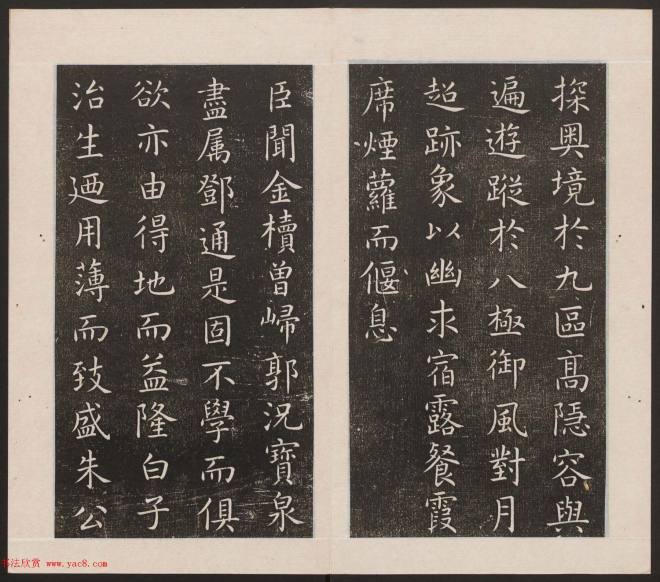 探奧境於九區高隱容與
遍遊蹤於八極御風對月
超跡象以幽求宿露餐霞
席煙蘿而偃息
臣聞金櫝曾歸郭況寶泉
盡属鄧通是固不學而俱
欲亦由得地而益隆白子
治生廼用薄而致盛朱公
书法欣赏 www.yac8.com